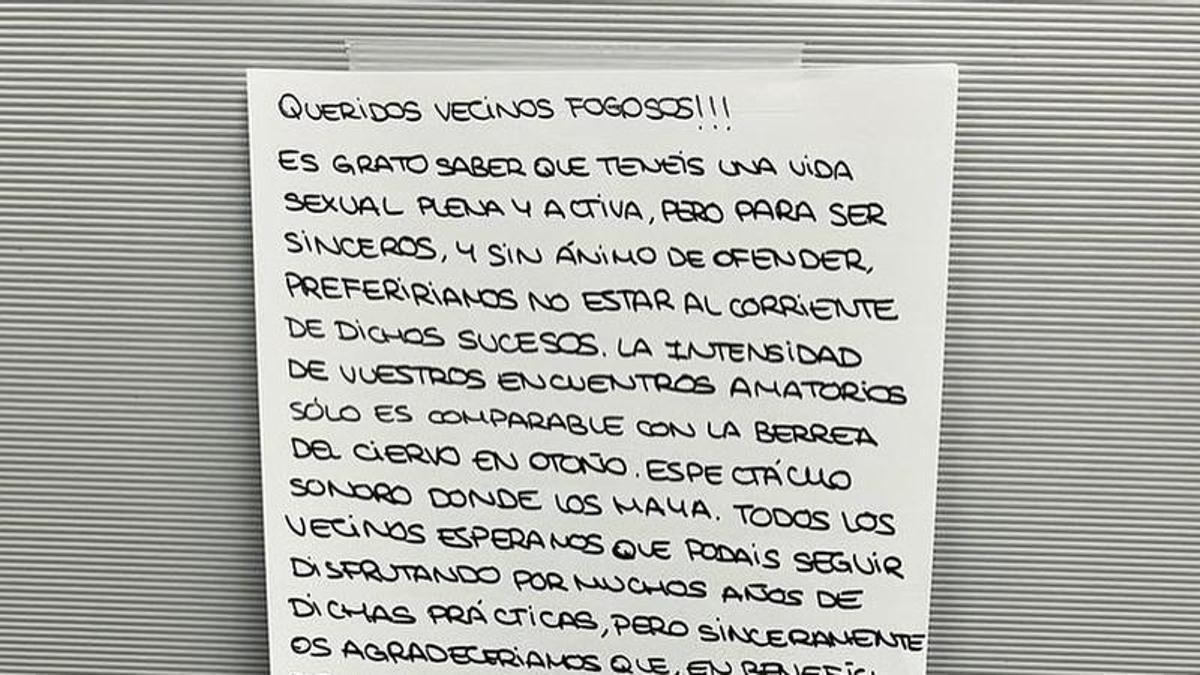 QUERIDOS VECINOS FOGOSOS!!!
ES GRATO SABER QUE TENEÍS UNA VIDA
SEXUAL PLENA Y ACTIVA, PERO PARA SER
SINCEROS, Y SIN ÁNIMO DE OFENDER,
PREFERIRIAMOS NO ESTAR AL CORRIENTE
DE DICHOS SUCESOS. LA INTENSIDAD
DE VUESTROS ENCUENTROS AMATORIOS
SÓLO ES COMPARABLE CON LA BERREA
DEL CIERVO EN OTOÑO. ESPECTÁCULO
SONORO DONDE LOS HAYA. TODOS LOS
VECINOS ESPERAMOS QUE PODAIS SEGUIR
DISFRUTANDO POR MUCHOS AÑOS DE
DICHAS PRÁCTICAS, PERO SINCERAMENTE
OS AGRADECERIAMOS QUE, EN BENEFICI